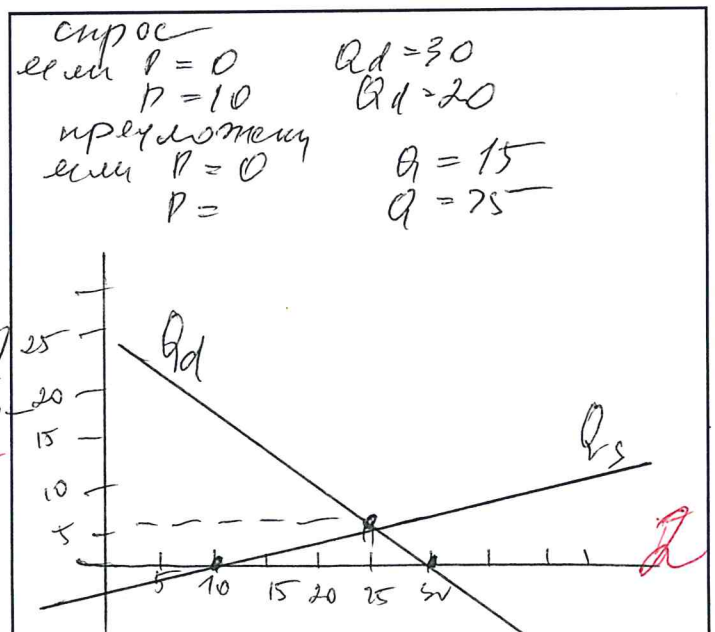 спрос
если P = 0 Qd = 30
P = 10 Qd = 20
предложени
если P = 0 Q = 15
P = Q = 25
25
20
15
10
5
Qd
Qs
5 10 15 20 25 30